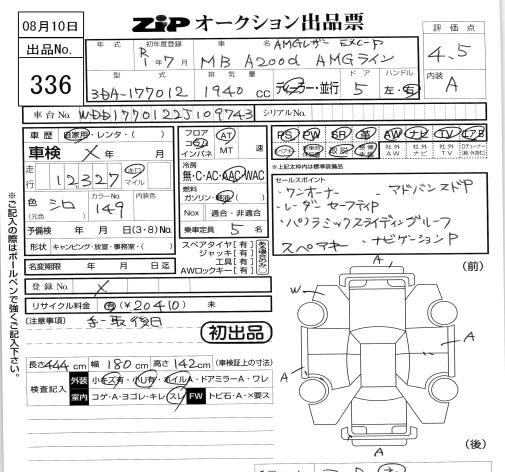 08月10日
ZiP オークション出品票
出品No.
336
評価点
4.5
内装
A
年式
初年度登録
R1年7月
車名
AMGレザーEXC-P
MB A200d AMGライン
型式
3DA-177012
排気量
1940 cc
ディーラー・並行
ドア
5
ハンドル
左・右
車台No. WDD1770122J109743
シリアルNo.
車歴 自家用・レンタ・( )
車検 X 年 月
走行 12,327 キロ マイル
色 シロ
(元色)
カラーNo.
149
内装色
予備検 年 月 日 (3・8)No.
形状 キャンピング・放雪・事務室・( )
名変期限 年 月 日迄
フロア
コラム
インパネ
AT
MT 速
冷房
無・C・AC・AAC・WAC
燃料
ガソリン・軽油・( )
Nox 適合・非適合
乗車定員 5 名
スペアタイヤ[有]
ジャッキ[有]
工具[有]
AWロックキー[有]
PS PW SR 革 AW ナビ TV エアB
社外AW 社外ナビ 社外TV
※上記太枠内は標準装備品
セールスポイント
・ワンオーナー ・アドバンスドP
・レーダーセーフティP
・パノラミックスライディングルーフ
スペアキー ・ナビゲーションP
登録No. X
リサイクル料金 有(¥20410) 未
(注意事項) 手取後日
初出品
長さ444cm 幅180cm 高さ142cm (車検証上の寸法)
検査記入
外装 小キズ有・小U有・ホイルA・ドアミラーA・ワレ
室内 コゲ・A・ヨゴレ・キレ・スレ FW トビ石・A・×要ス
※ご記入の際はボールペンで強くご記入下さい。
(前)
A
W
A
A
A
(後)